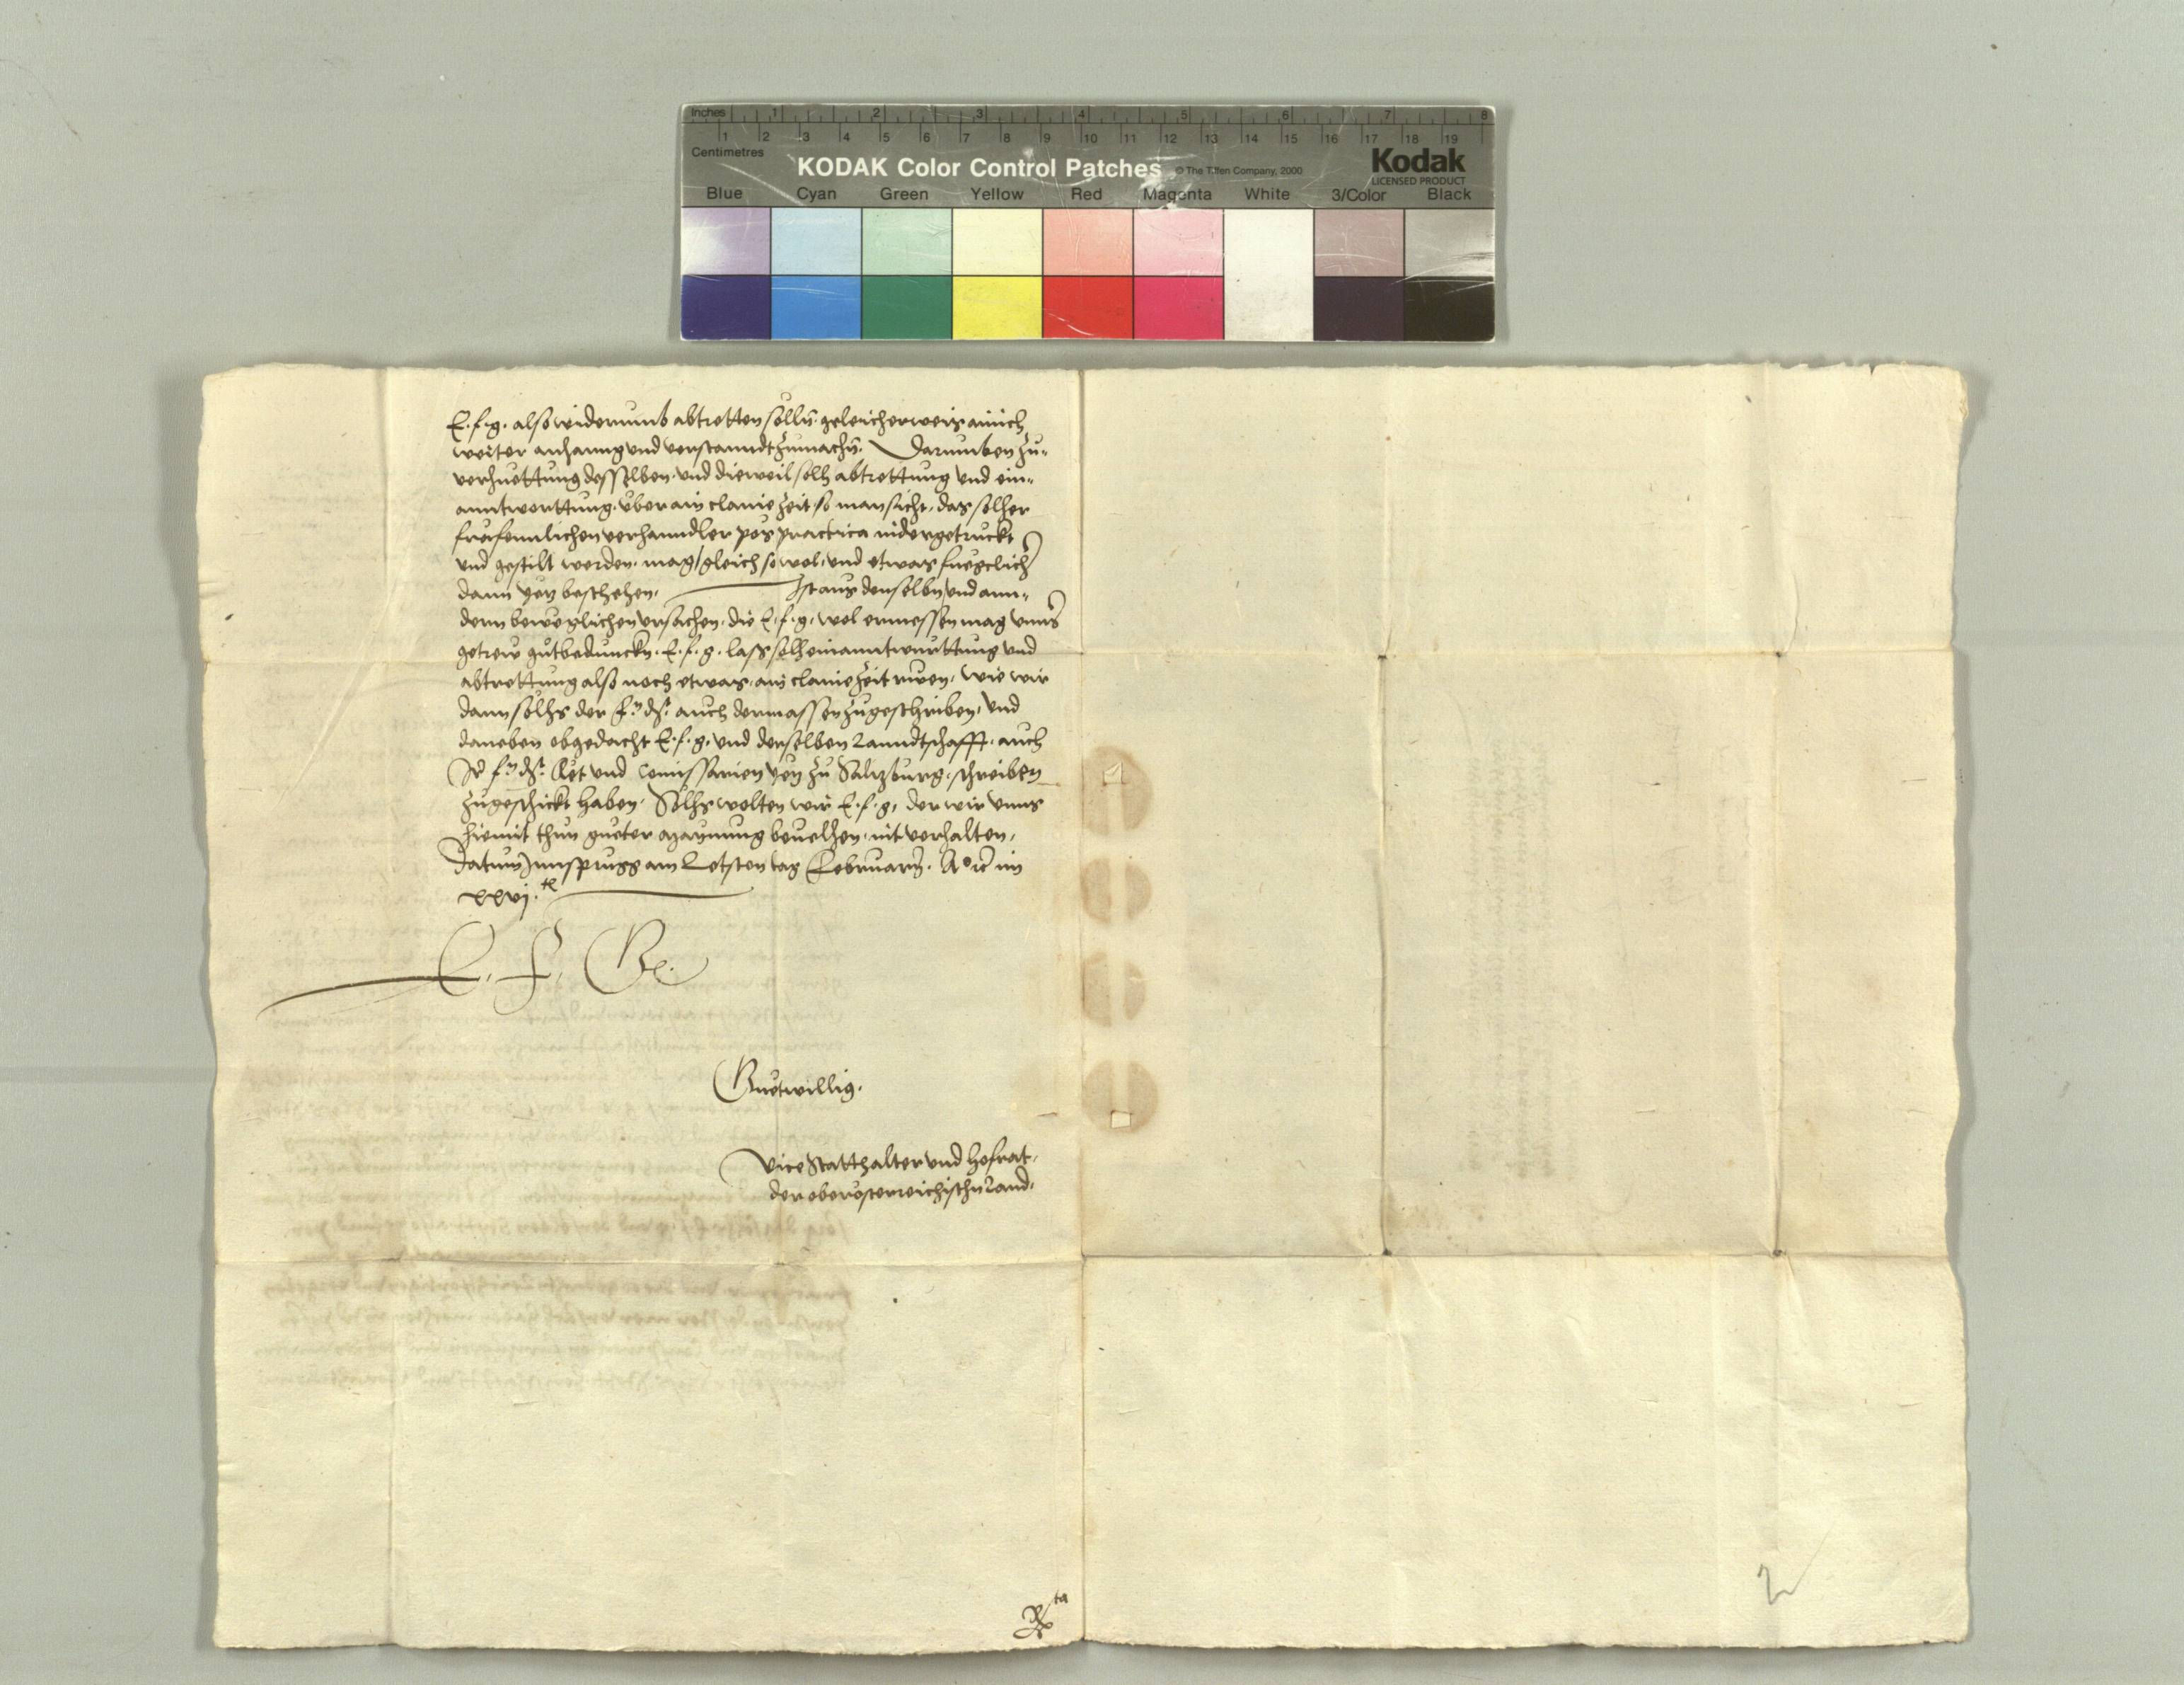 Inches 1 2 3 4 5 6 7 8
1 2 3 4 5 6 7 8 9 10 11 12 13 14 15 16 17 18 19
Centimetres
KODAK Color Control Patches © The Tiffen Company, 2000
Kodak
LICENSED PRODUCT
Blue Cyan Green Yellow Red Magenta White 3/Color Black
E. f. g. also widerumb abtretten solln. gleicherweis ainich
weiter anhanng und verstanndt zumachn. Darumben zu-
verhuettung desselben. und dieweil solh abtrettung und ein-
anntwerttung. uber ain claine zeit. so man sicht, das solher
fräfennlichen verhanndler pös practica nidergetruckt
und gestilt werden. mag / gleich so wol, und etwas fueglich
dann yetz beschehen. Ist aus denselbn und ann-
dern beweglichen ursachen. die E. f. g. wol ermessen mag unns
getrew gutbedunckn. E. f. g. lass solh einanntwurttung und
abtrettung also noch etwas. ain claine zeit ruen. wie wir
dann solhs der f. d. auch dermassen zugeschriben, und
daneben obgedacht E. f. g. und derselben Lanndtschafft. auch
Ir f. d. Rét und Comissarien yetz zu Saltzburg. schreiben
zugeschickt haben. Solhs wolten wir E. f. g. der wir unns
hiemit thun gueter maynung bevelhen. nit verhalten.
Datum Innsprugg am Letsten tag Februarii. A° im
xxvj.
E. F. G.
Guetwillig.
Vice Statthalter und Hofrat.
der oberösterreichischn Land.
2